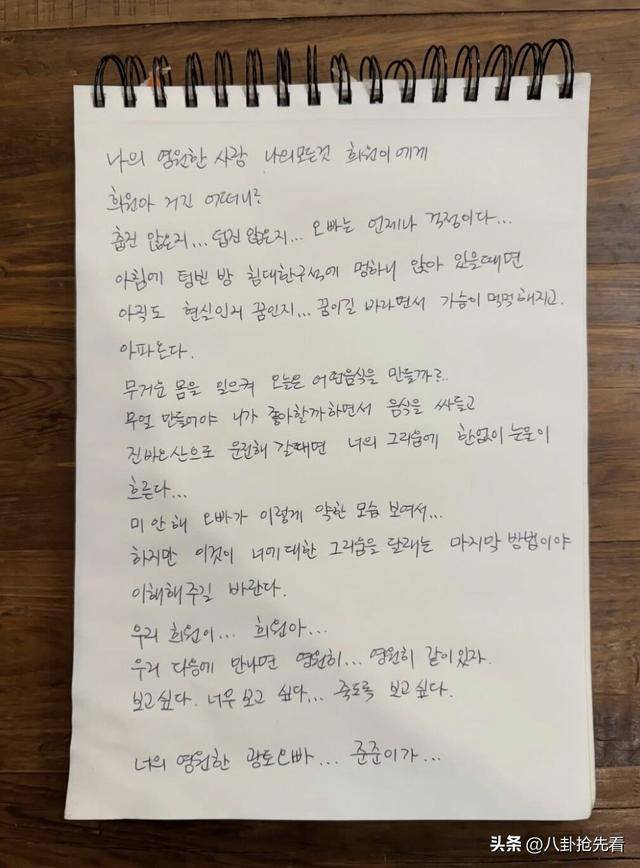 나의 영원한 사랑 나의모든것 희원이에게
희원아 거긴 어떠니?
춥진 않은지... 덥진 않은지... 오빠는 언제나 걱정이다...
아침에 텅빈 방 침대한구석에 멍하니 앉아 있을때면
아직도 현실인지 꿈인지... 꿈이길 바라면서 가슴이 먹먹해지고.
아파온다.
무거운 몸을 일으켜 오늘은 어떤음식을 만들까?..
무얼 만들어야 니가 좋아할까하면서 음식을 싸들고
진바오산으로 운전해 갈때면 너의 그리움에 한없이 눈물이
흐른다...
미안해 오빠가 이렇게 약한 모습 보여서...
하지만 이것이 너에대한 그리움을 달래는 마지막 방법이야
이해해주길 바란다.
우리 희원이... 희원아...
우리 다음에 만나면 영원히... 영원히 같이있자.
보고싶다. 너무 보고 싶다... 죽도록 보고싶다.
너의 영원한 광토오빠... 준준이가...
头条 @八卦抢先看